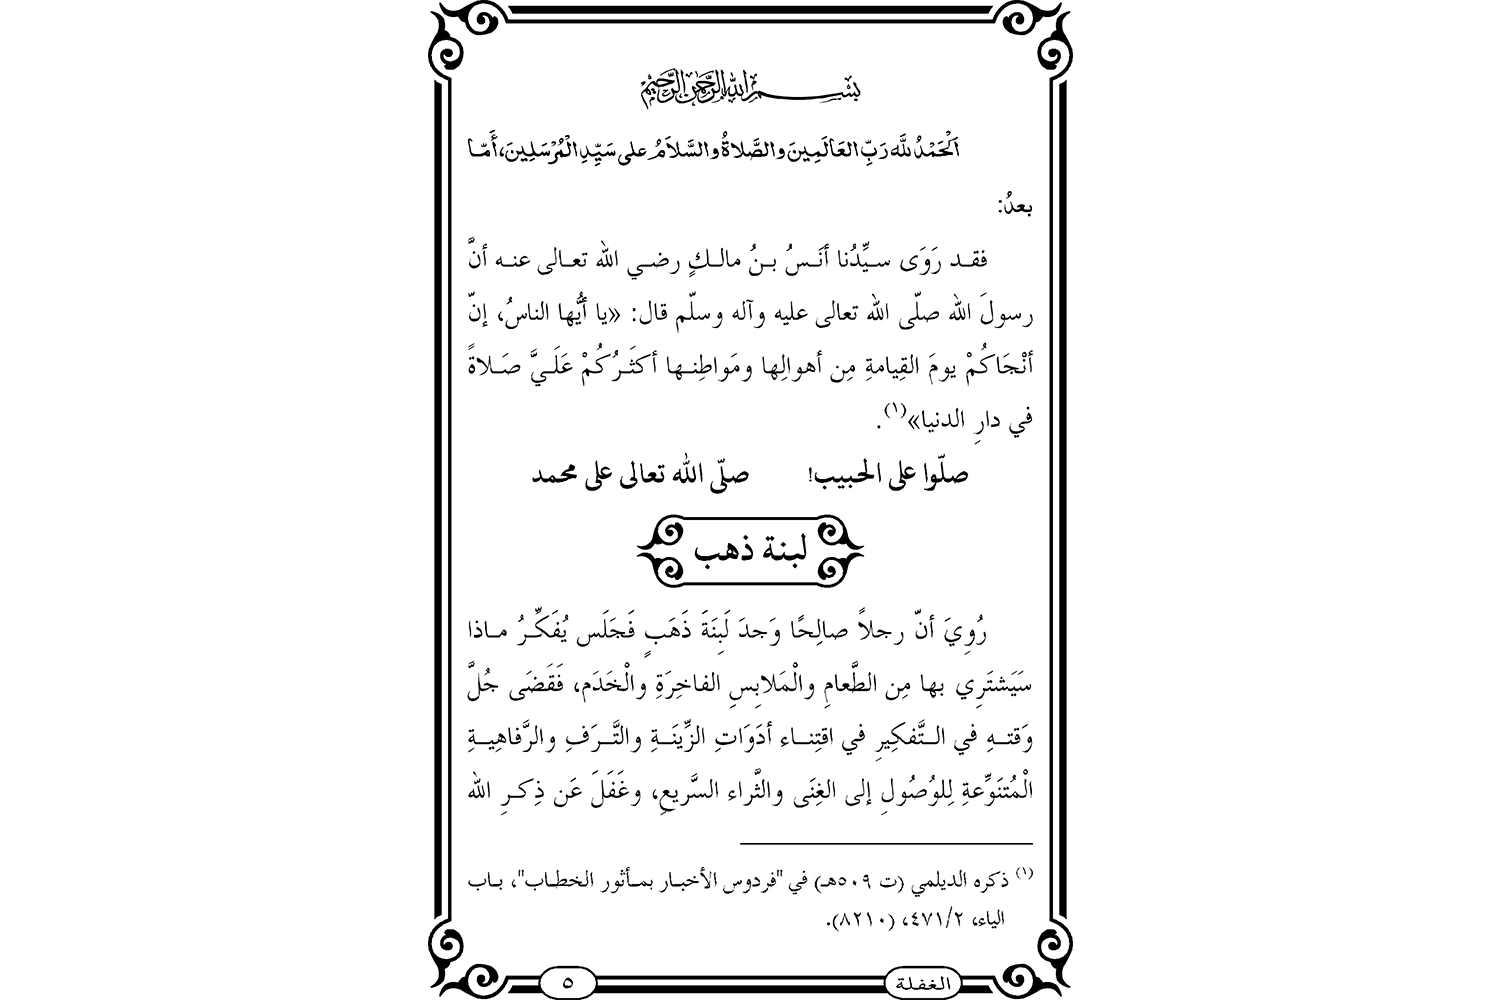 بِسْمِ اللهِ الرَّحْمٰنِ الرَّحِيْمِ
اَلْحَمْدُ للهِ رَبِّ العَالَمِينَ والصَّلاةُ والسَّلاَمُ على سَيِّدِ الْمُرْسَلِينَ، أَمّا
بعدُ:
فقد رَوَى سيِّدُنا أنَسُ بنُ مالكٍ رضي الله تعالى عنه أنَّ
رسولَ الله صلّى الله تعالى عليه وآله وسلّم قال: «يا أيُّها الناسُ، إنّ
أنْجَاكُمْ يومَ القِيامةِ مِن أهوالِها ومَواطِنها أكثَرُكُمْ عَلَيَّ صَلاةً
في دارِ الدنيا»(١).
صلّوا على الحبيب! صلّى الله تعالى على محمد
لبنة ذهب
رُوِيَ أنّ رجلاً صالِحًا وَجدَ لَبِنَةَ ذَهَبٍ فَجَلَس يُفَكِّرُ ماذا
سَيَشتَرِي بها مِن الطَّعامِ والْمَلابِسِ الفاخِرَةِ والْخَدَم، فَقَضَى جُلَّ
وَقتهِ في التَّفكِيرِ في اقتِناء أدَوَاتِ الزِّينَةِ والتَّرَفِ والرَّفاهِيةِ
الْمُتَنَوِّعةِ لِلوُصُولِ إلى الغِنَى والثَّراء السَّريعِ، وغَفَلَ عَن ذِكرِ الله
(١) ذكره الديلمي (ت ٥٠٩هـ) في "فردوس الأخبار بمأثور الخطاب"، باب
الياء، ٤٧١/٢، (٨٢١٠).
الغفلة ٥